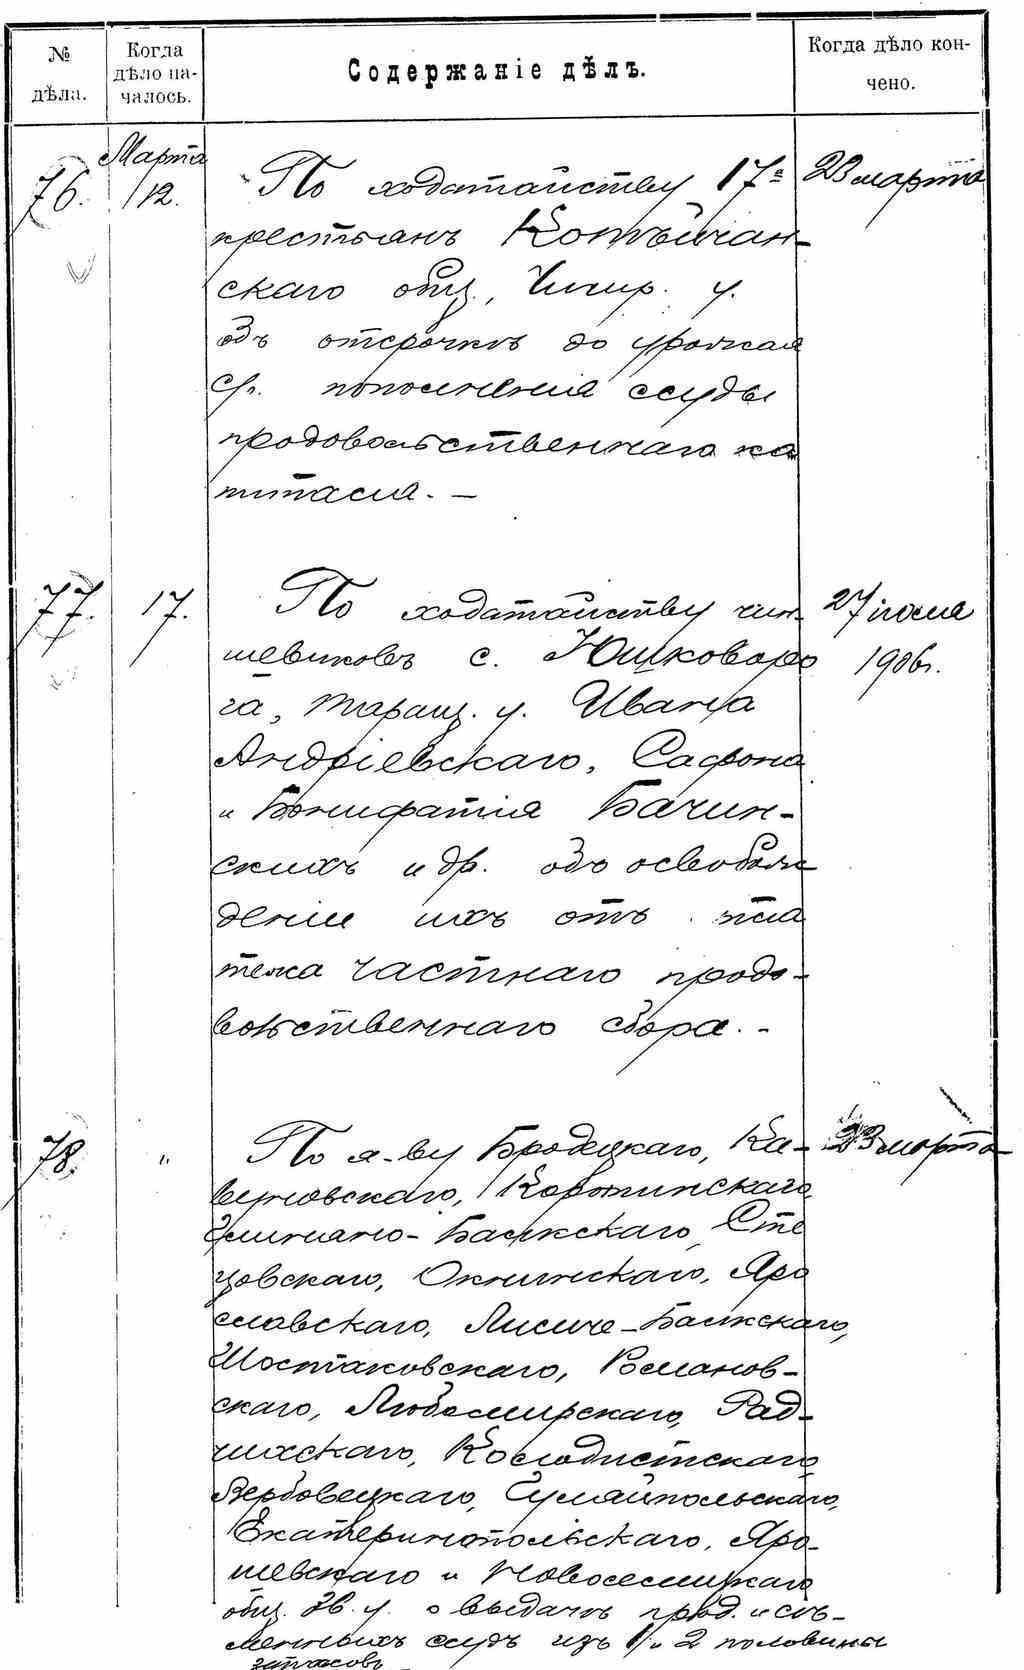 №
дѣла.
Когда
дѣло на-
чалось.
Содержаніе дѣлъ.
Когда дѣло кон-
чено.
76.
Марта
12.
По ходатайству 17ᵃ
крестьянъ
скаго общ., Чигир. у.
объ отсрочкѣ до урожая
пополненія ссуды
продовольственнаго ка
питала. –
23 марта
77.
17.
По ходатайству чин-
шевиковъ с. Юшковаро
га, Таращ. у. Ивана
Андріевскаго, Сафона
и Бонифатія Бачин-
скихъ и др. объ освобож
деніи ихъ отъ пла
тежа частнаго продо-
вольственнаго сбора. -
27 іюля
1906г.
78.
"
По х-ву Бродецкаго, Ка-
вуновскаго,
Балкскаго, Сте
цовскаго, Окнинскаго, Яро
славскаго, Лисиче-Балкскаго,
Шостаковскаго, Романов-
скаго, Любомирскаго, Рад-
чихскаго, Колодистскаго
Вербовецкаго, Гуляйпольскаго,
Екатеринопольскаго, Яро-
шевскаго и Новоселицкаго
общ. Зв. у. о выдачѣ прод. и сѣ-
менныхъ ссудъ изъ 1 и 2 половины
запасовъ –
23 марта